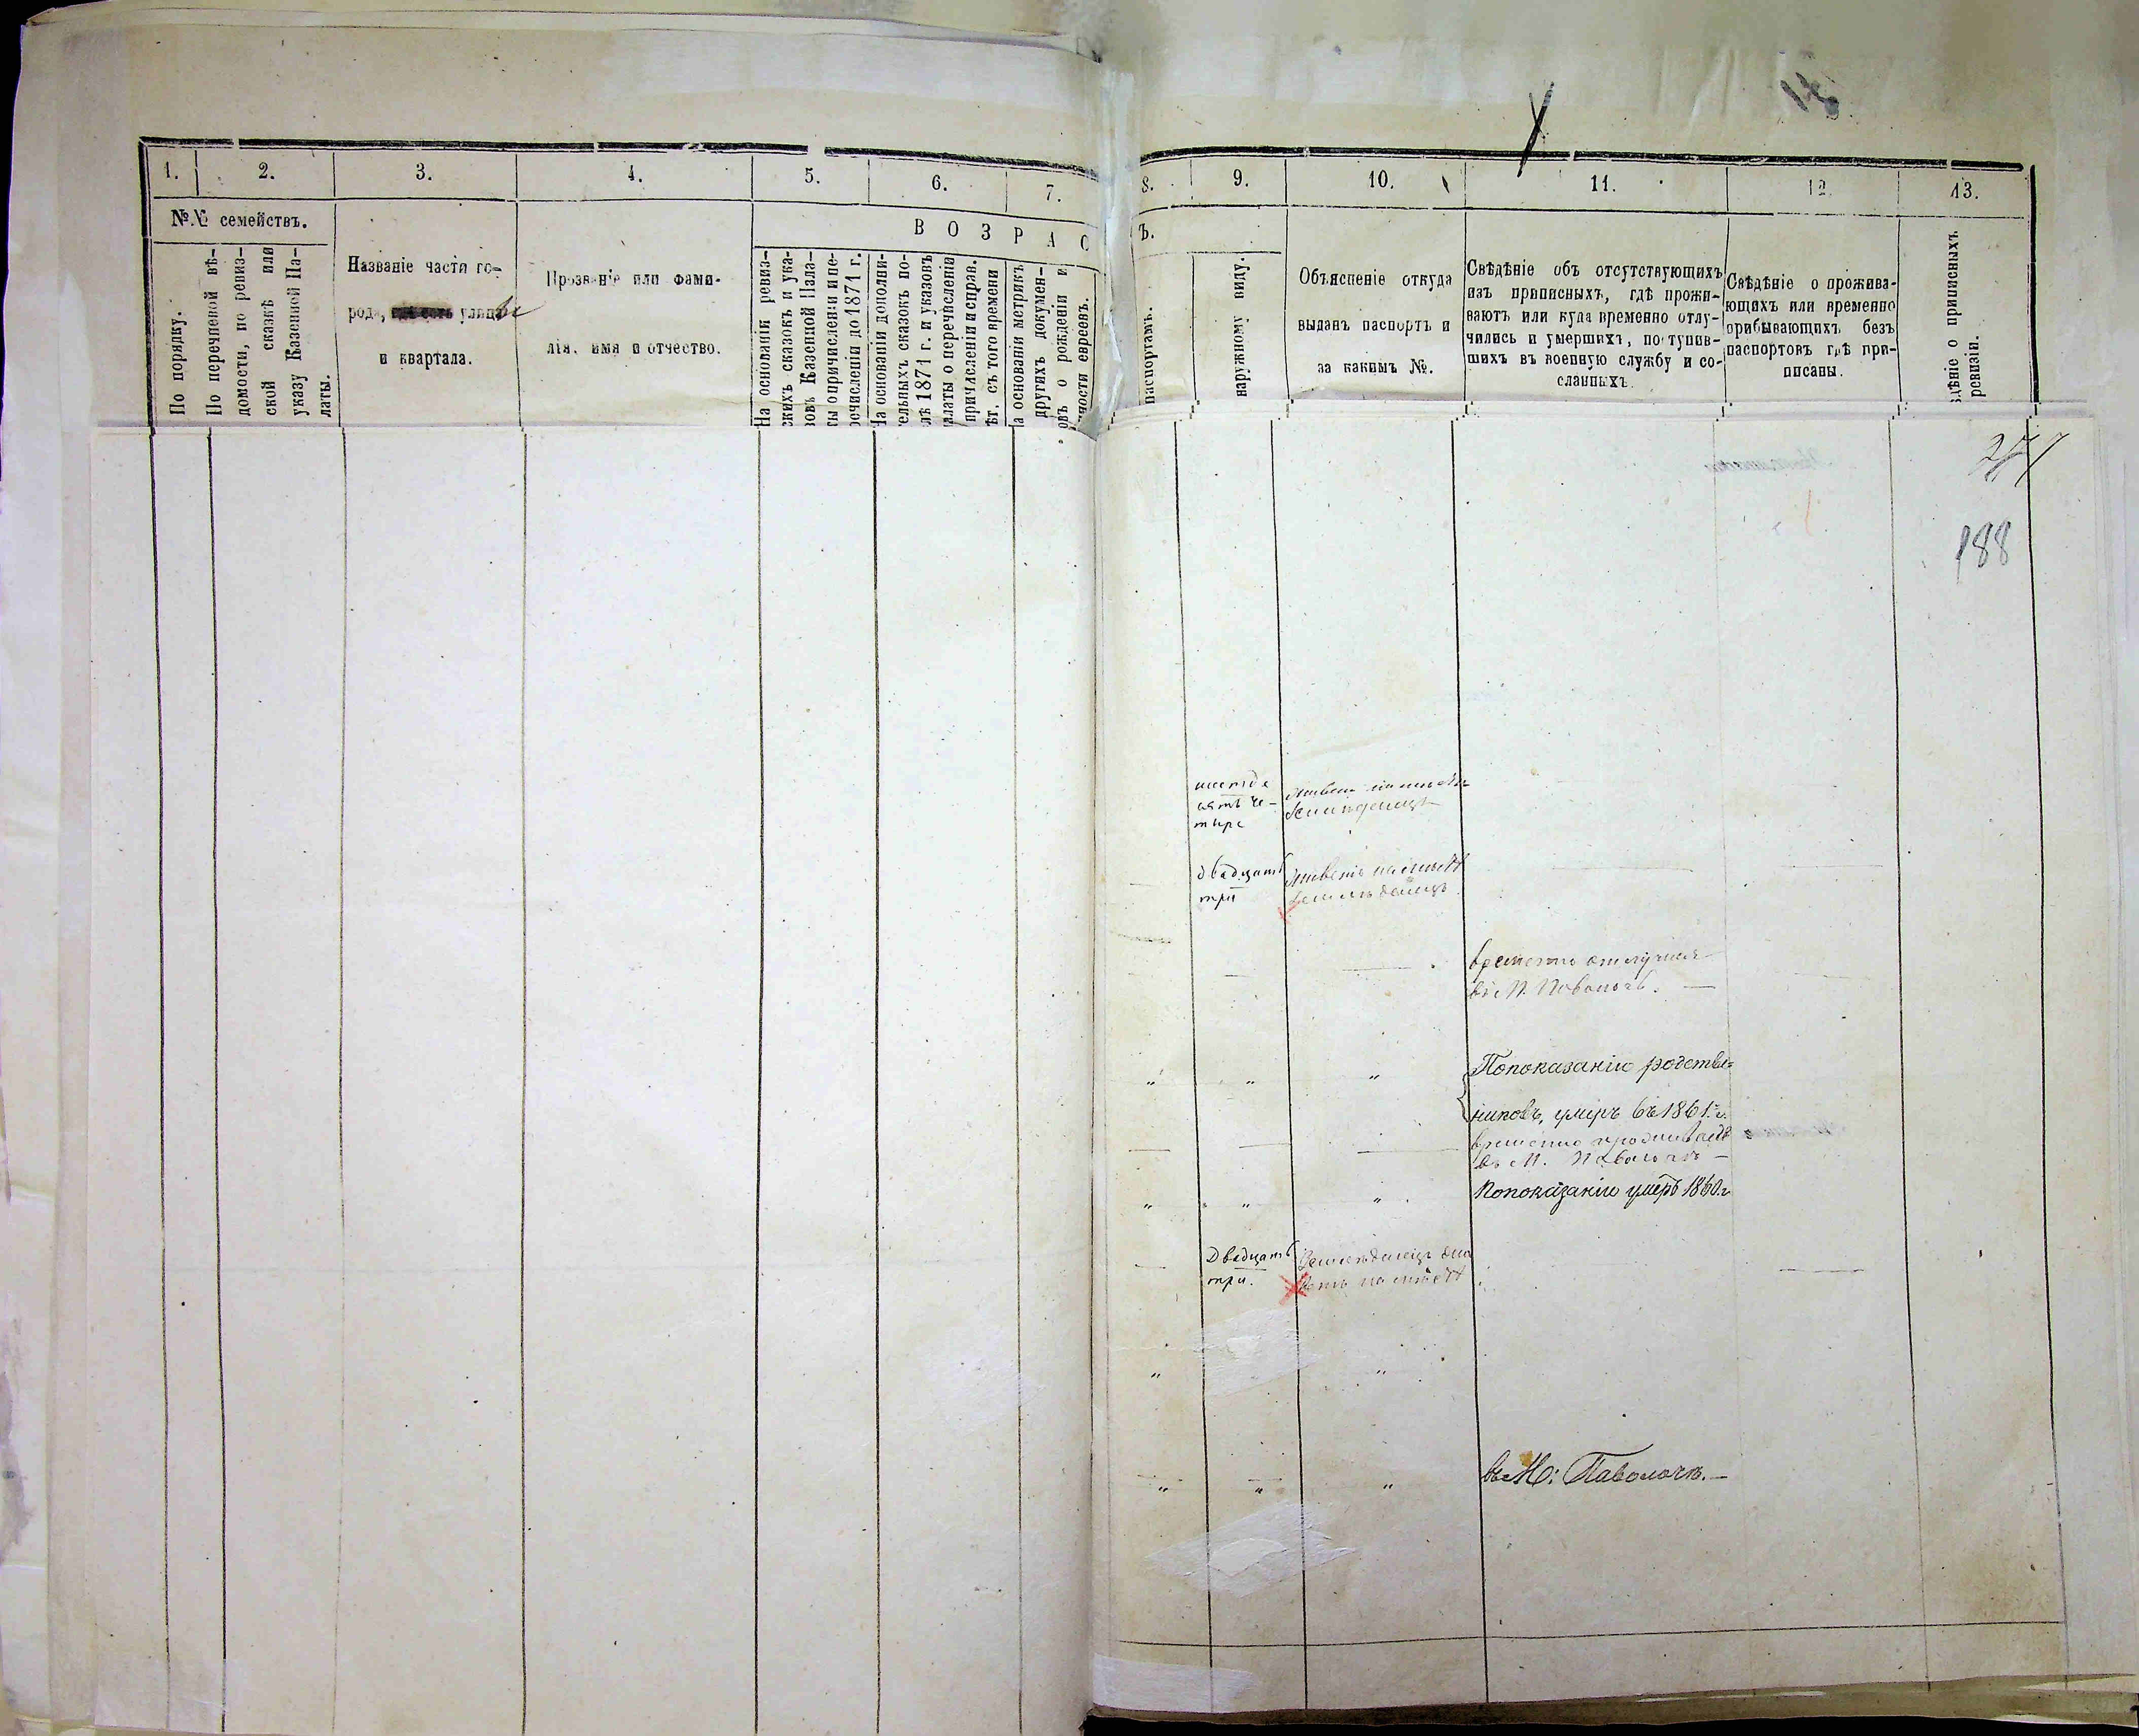 1. 2. 3. 4. 5. 6. 7.
№№ семействъ.
По порядку.
По перечневой вѣ-
домости, по ревиз-
ской сказкѣ или
указу Казенной Па-
латы.
Названіе части го-
рода, улицы
и квартала.
Прозваніе или фами-
лія, имя и отчество.
В О З Р А С
На основаніи ревиз-
скихъ сказокъ и ука-
зовъ Казенной Пала-
ты о причисленіи и пе-
речисленіи до 1871 г.
На основаніи дополни-
тельныхъ сказокъ по-
слѣ 1871 г. и указовъ
палаты о перечисленіи
причисленіи и справ.
лѣт. съ того времени
На основаніи метрикъ
другихъ докумен-
товъ о рожденіи и
личности евреевъ.
8. 9. 10. 11. 12. 13.
Ъ.
паспортамъ.
наружному виду.
Объясненіе откуда
выданъ паспортъ и
за какимъ №.
Свѣдѣніе объ отсутствующихъ
изъ приписныхъ, гдѣ прожи-
ваютъ или куда временно отлу-
чились и умершихъ, поступив-
шихъ въ военную службу и со-
сланныхъ.
Свѣдѣніе о прожива-
ющихъ или временно
прибывающихъ безъ
паспортовъ гдѣ при-
писаны.
дѣніе о приписныхъ
ревизіи.
188
шестьде
сятъ че-
тыре
двадцать
три
временно отлучился
въ М. Паволочь. —
" " " Попоказанію родствен=
никовъ, умеръ въ 1861 г.
временно проживаетъ
въ М. Паволочь —
" " " Попоказанію умеръ 1860 г.
Двадцать
три.
" "
" " " въ М: Паволочь. —